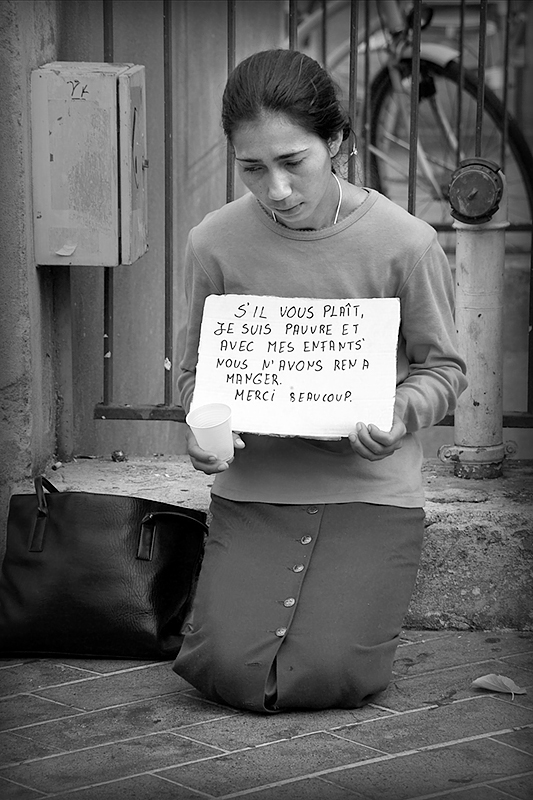 S'IL VOUS PLAÎT,
JE SUIS PAUVRE ET
AVEC MES ENFANTS
NOUS N'AVONS REN A
MANGER.
MERCI BEAUCOUP.